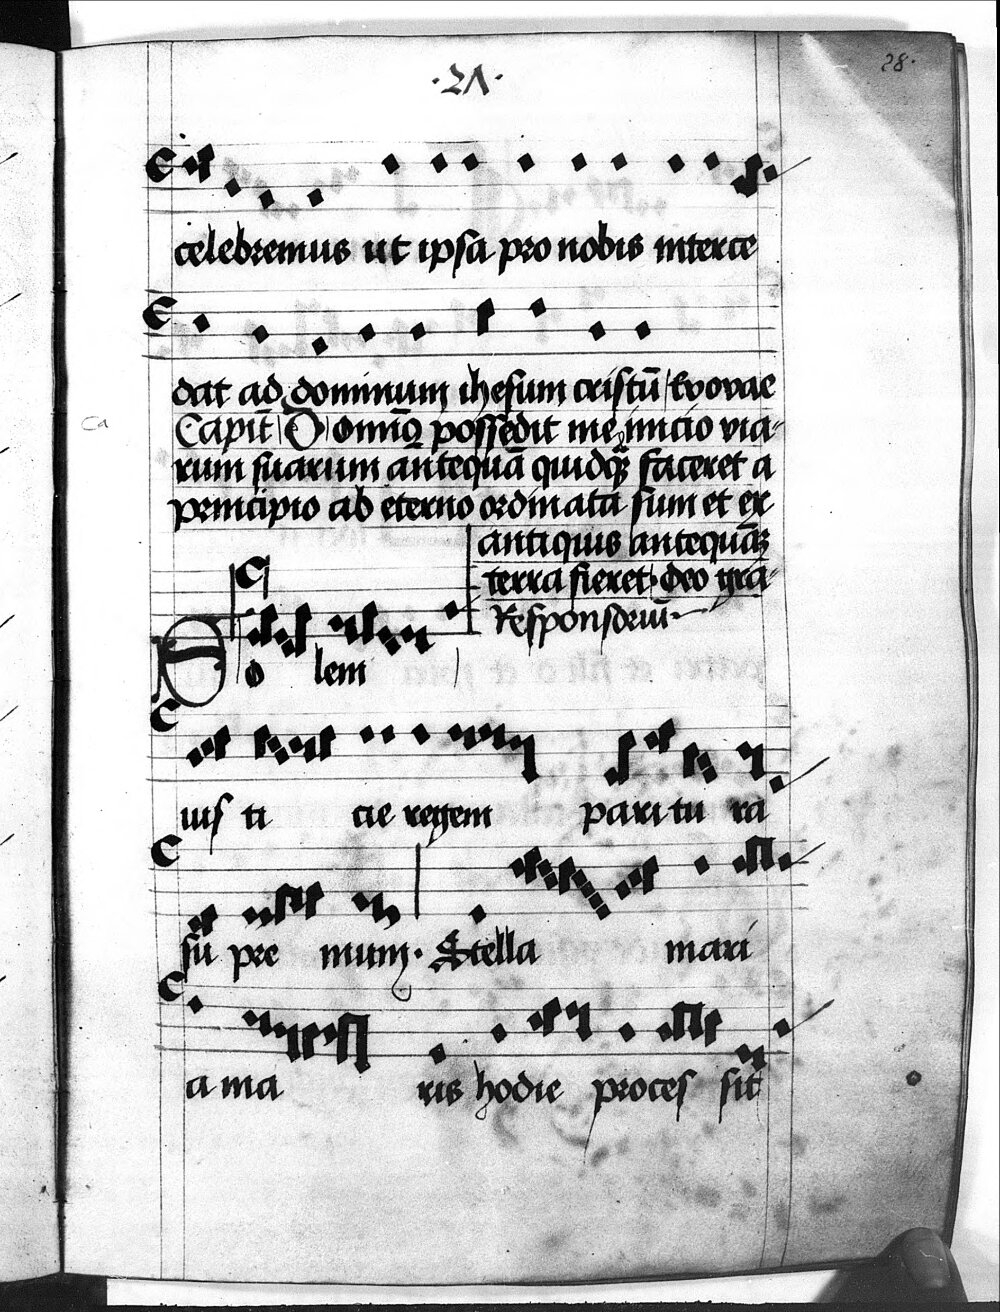 ·2Λ·
28·
celebremus ut ipsa pro nobis interce
dat ad dominum ihesum cristū evovae
Ca
Capit̄ Domin9 possedit me inicio via-
rum suarum antequā quidq̄ faceret a
principio ab eterno ordinata sum et ex
antiquis antequā
terra fieret· deo gra-
Responsoriū·
Solem
iusticie regem paritura
supremum· Stella mari
a maris hodie processit